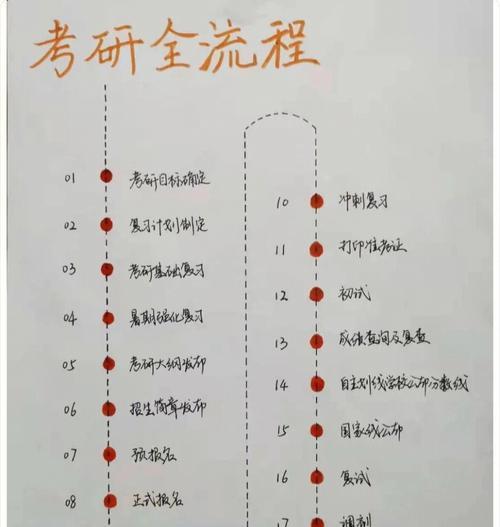 考研全流程
01 考研目标确定
02 复习计划制定
03 考研基础复习
04 暑期强化复习
05 考研大纲发布
06 招生简章发布
07 预报名
08 正式报名
10 冲刺复习
11 打印准考证
12 初试
13 成绩查询及复查
14 自主划线学校公布分数线
15 国家线公布
16 复试
17 调剂